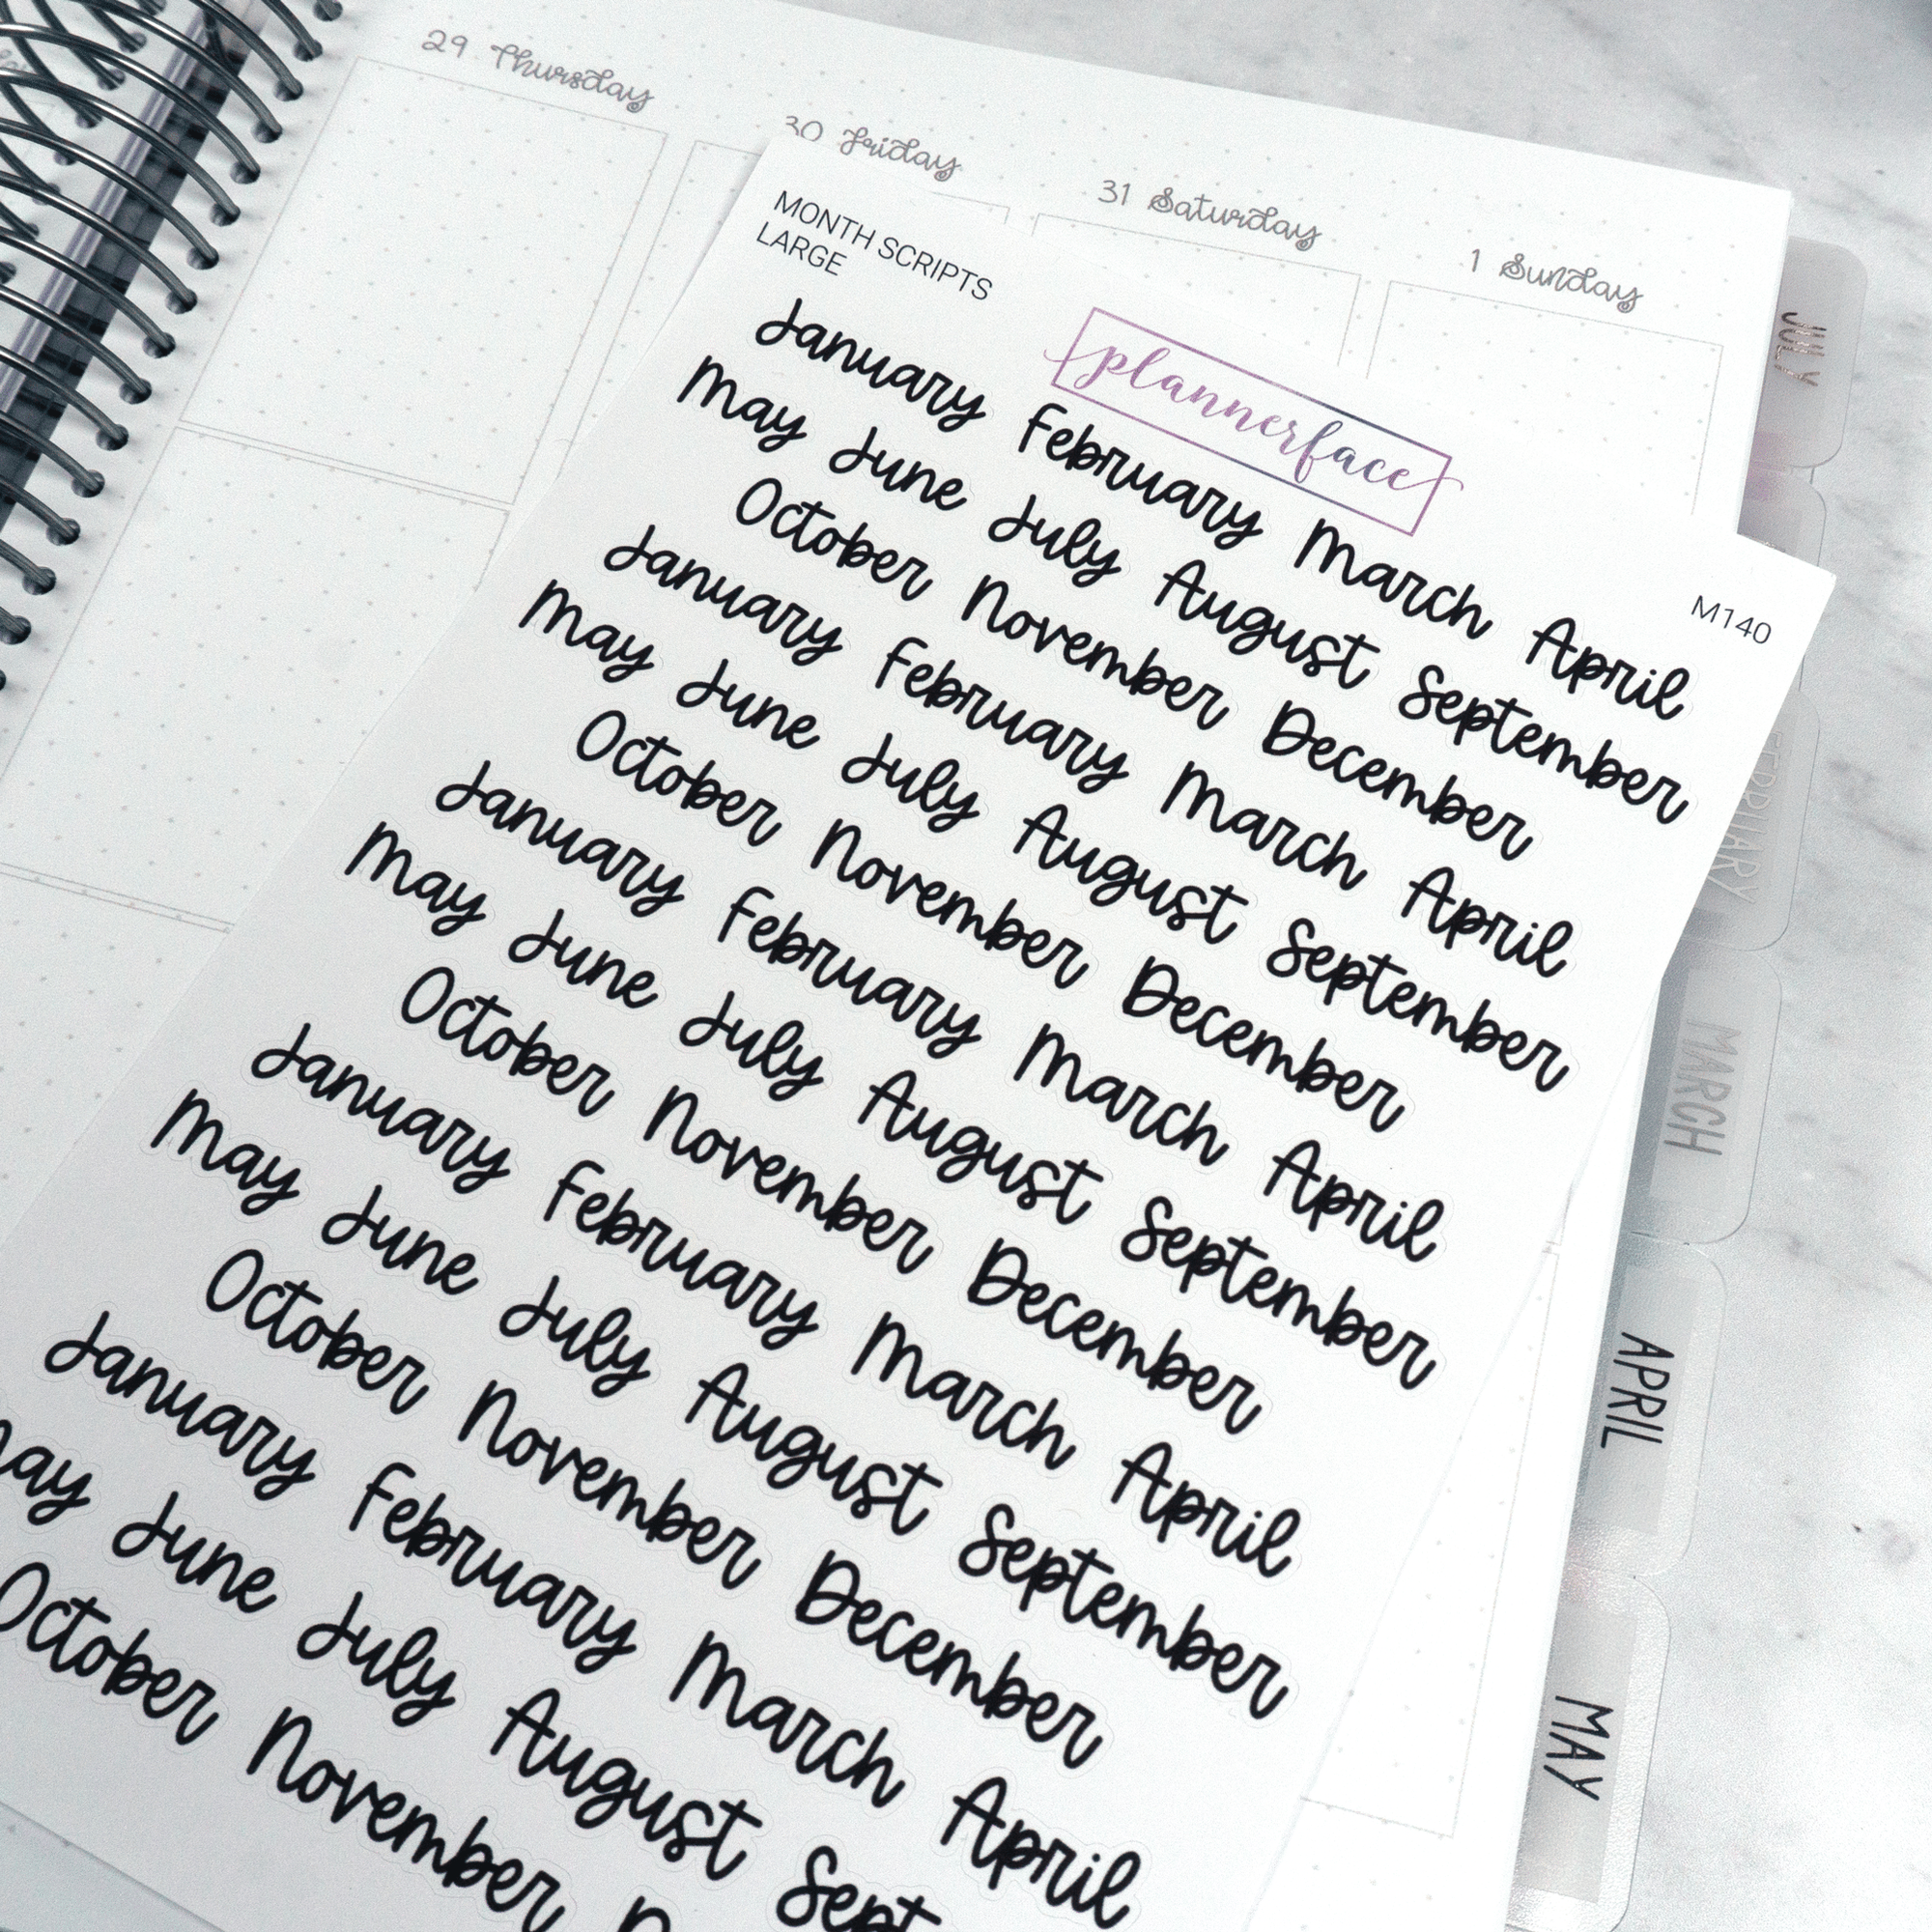 29 Thursday
30 Friday
31 Saturday
1 Sunday
MONTH SCRIPTS
LARGE
plannerface
M140
January February March April
May June July August September
October November December
January February March April
May June July August September
October November December
January February March April
May June July August September
October November December
January February March April
May June July August September
October November December
January February March April
May June July August Sept
October November
JULY
FEBRUARY
MARCH
APRIL
MAY